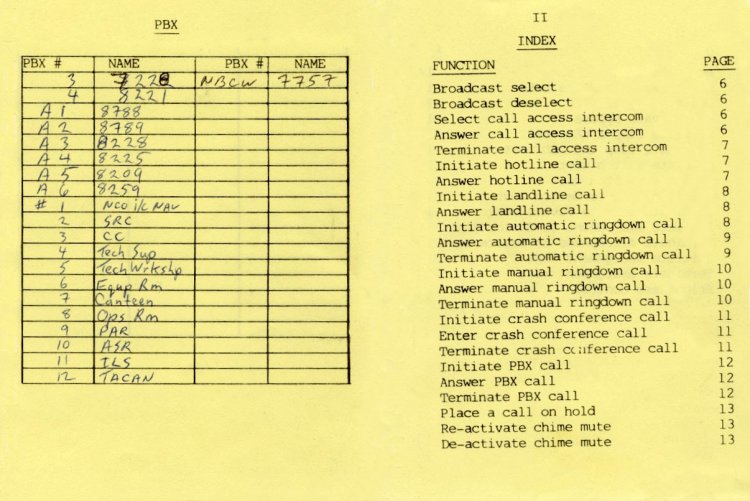 PBX
PBX # NAME PBX # NAME
3 NBCW 7757
4 8221
A 1 8788
A 2 8789
A 3 8228
A 4 8225
A 5 8209
A 6 8259
# 1 NCO i/c NAV
2 SRC
3 CC
4 Tech Sup
5 Tech Wrkshp
6 Equp Rm
7 Canteen
8 Ops Rm
9 PAR
10 ASR
11 ILS
12 TACAN
II
INDEX
FUNCTION PAGE
Broadcast select 6
Broadcast deselect 6
Select call access intercom 6
Answer call access intercom 6
Terminate call access intercom 7
Initiate hotline call 7
Answer hotline call 7
Initiate landline call 8
Answer landline call 8
Initiate automatic ringdown call 8
Answer automatic ringdown call 9
Terminate automatic ringdown call 9
Initiate manual ringdown call 10
Answer manual ringdown call 10
Terminate manual ringdown call 10
Initiate crash conference call 11
Enter crash conference call 11
Terminate crash conference call 11
Initiate PBX call 12
Answer PBX call 12
Terminate PBX call 12
Place a call on hold 13
Re-activate chime mute 13
De-activate chime mute 13